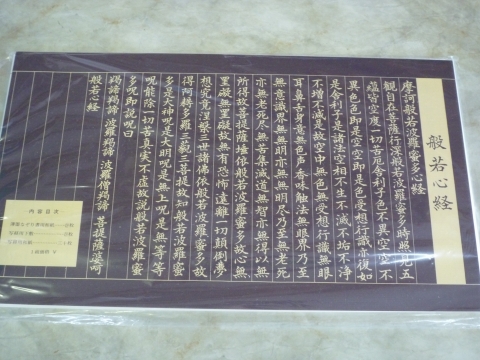 般若心經
摩訶般若波羅蜜多心經
觀自在菩薩行深般若波羅蜜多時照見五
蘊皆空度一切苦厄舍利子色不異空空不
異色色即是空空即是色受想行識亦復如
是舍利子是諸法空相不生不滅不垢不淨
不增不減是故空中無色無受想行識無眼
耳鼻舌身意無色声香味触法無眼界乃至
無意識界無無明亦無無明尽乃至無老死
亦無老死尽無苦集滅道無智亦無得以無
所得故菩提薩埵依般若波羅蜜多故心無
罣礙無罣礙故無有恐怖遠離一切顛倒夢
想究竟涅槃三世諸佛依般若波羅蜜多故
得阿耨多羅三藐三菩提故知般若波羅蜜
多是大神呪是大明呪是無上呪是無等等
呪能除一切苦真実不虛故説般若波羅蜜
多呪即説呪曰
羯諦羯諦 波羅羯諦 波羅僧羯諦 菩提薩婆呵
般若心經